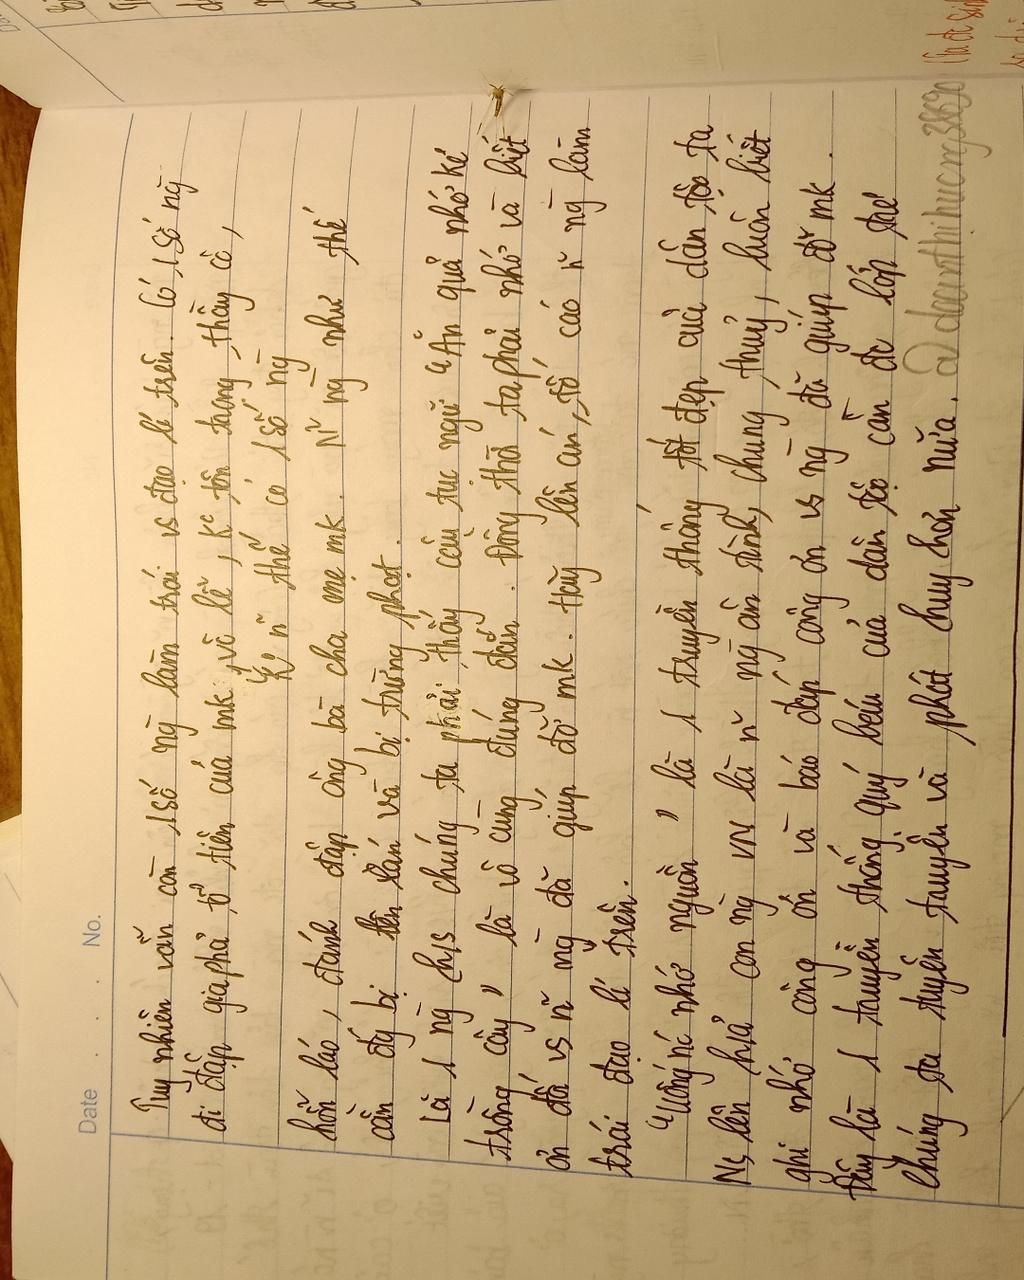 Date . . . No.
Tuy nhiên vẫn còn 1 số ng̀ làm trái vs đạo lí trên. Có 1 số ng̀
đi đập gia phả tổ tiên của mk, vô lễ, K° tôn trọng thầy cô,
K° n~ thế có 1 số ng̀
hỗn láo, đánh đập ông bà cha mẹ mk. N~ ng̀ như thế
cần đc bị lên án và bị trừng phạt.
Là 1 ng̀ chúng ta phải thấy câu tục ngữ "Ăn quả nhớ kẻ
trồng cây" là vô cùng đúng đắn. Đồng thời ta phải nhớ và biết
ơn đối vs n~ ng̀ đã giúp đỡ mk. Hãy lên án, tố cáo n~ ng̀ làm
trái đạo lí trên.
"Uống nc nhớ nguồn" là 1 truyền thống tốt đẹp của dân tộc ta
lên con ng̀ VN là n~ ng̀ ân tình, chung thuỷ, luôn biết
ghi nhớ công ơn và báo đáp công ơn vs ng̀ đã giúp đỡ mk.
Đây là 1 truyền thống quý báu của dân tộc cần đc lớp thế
chúng ta tuyên truyền và phát huy hơn nữa. @doanthihuong38690